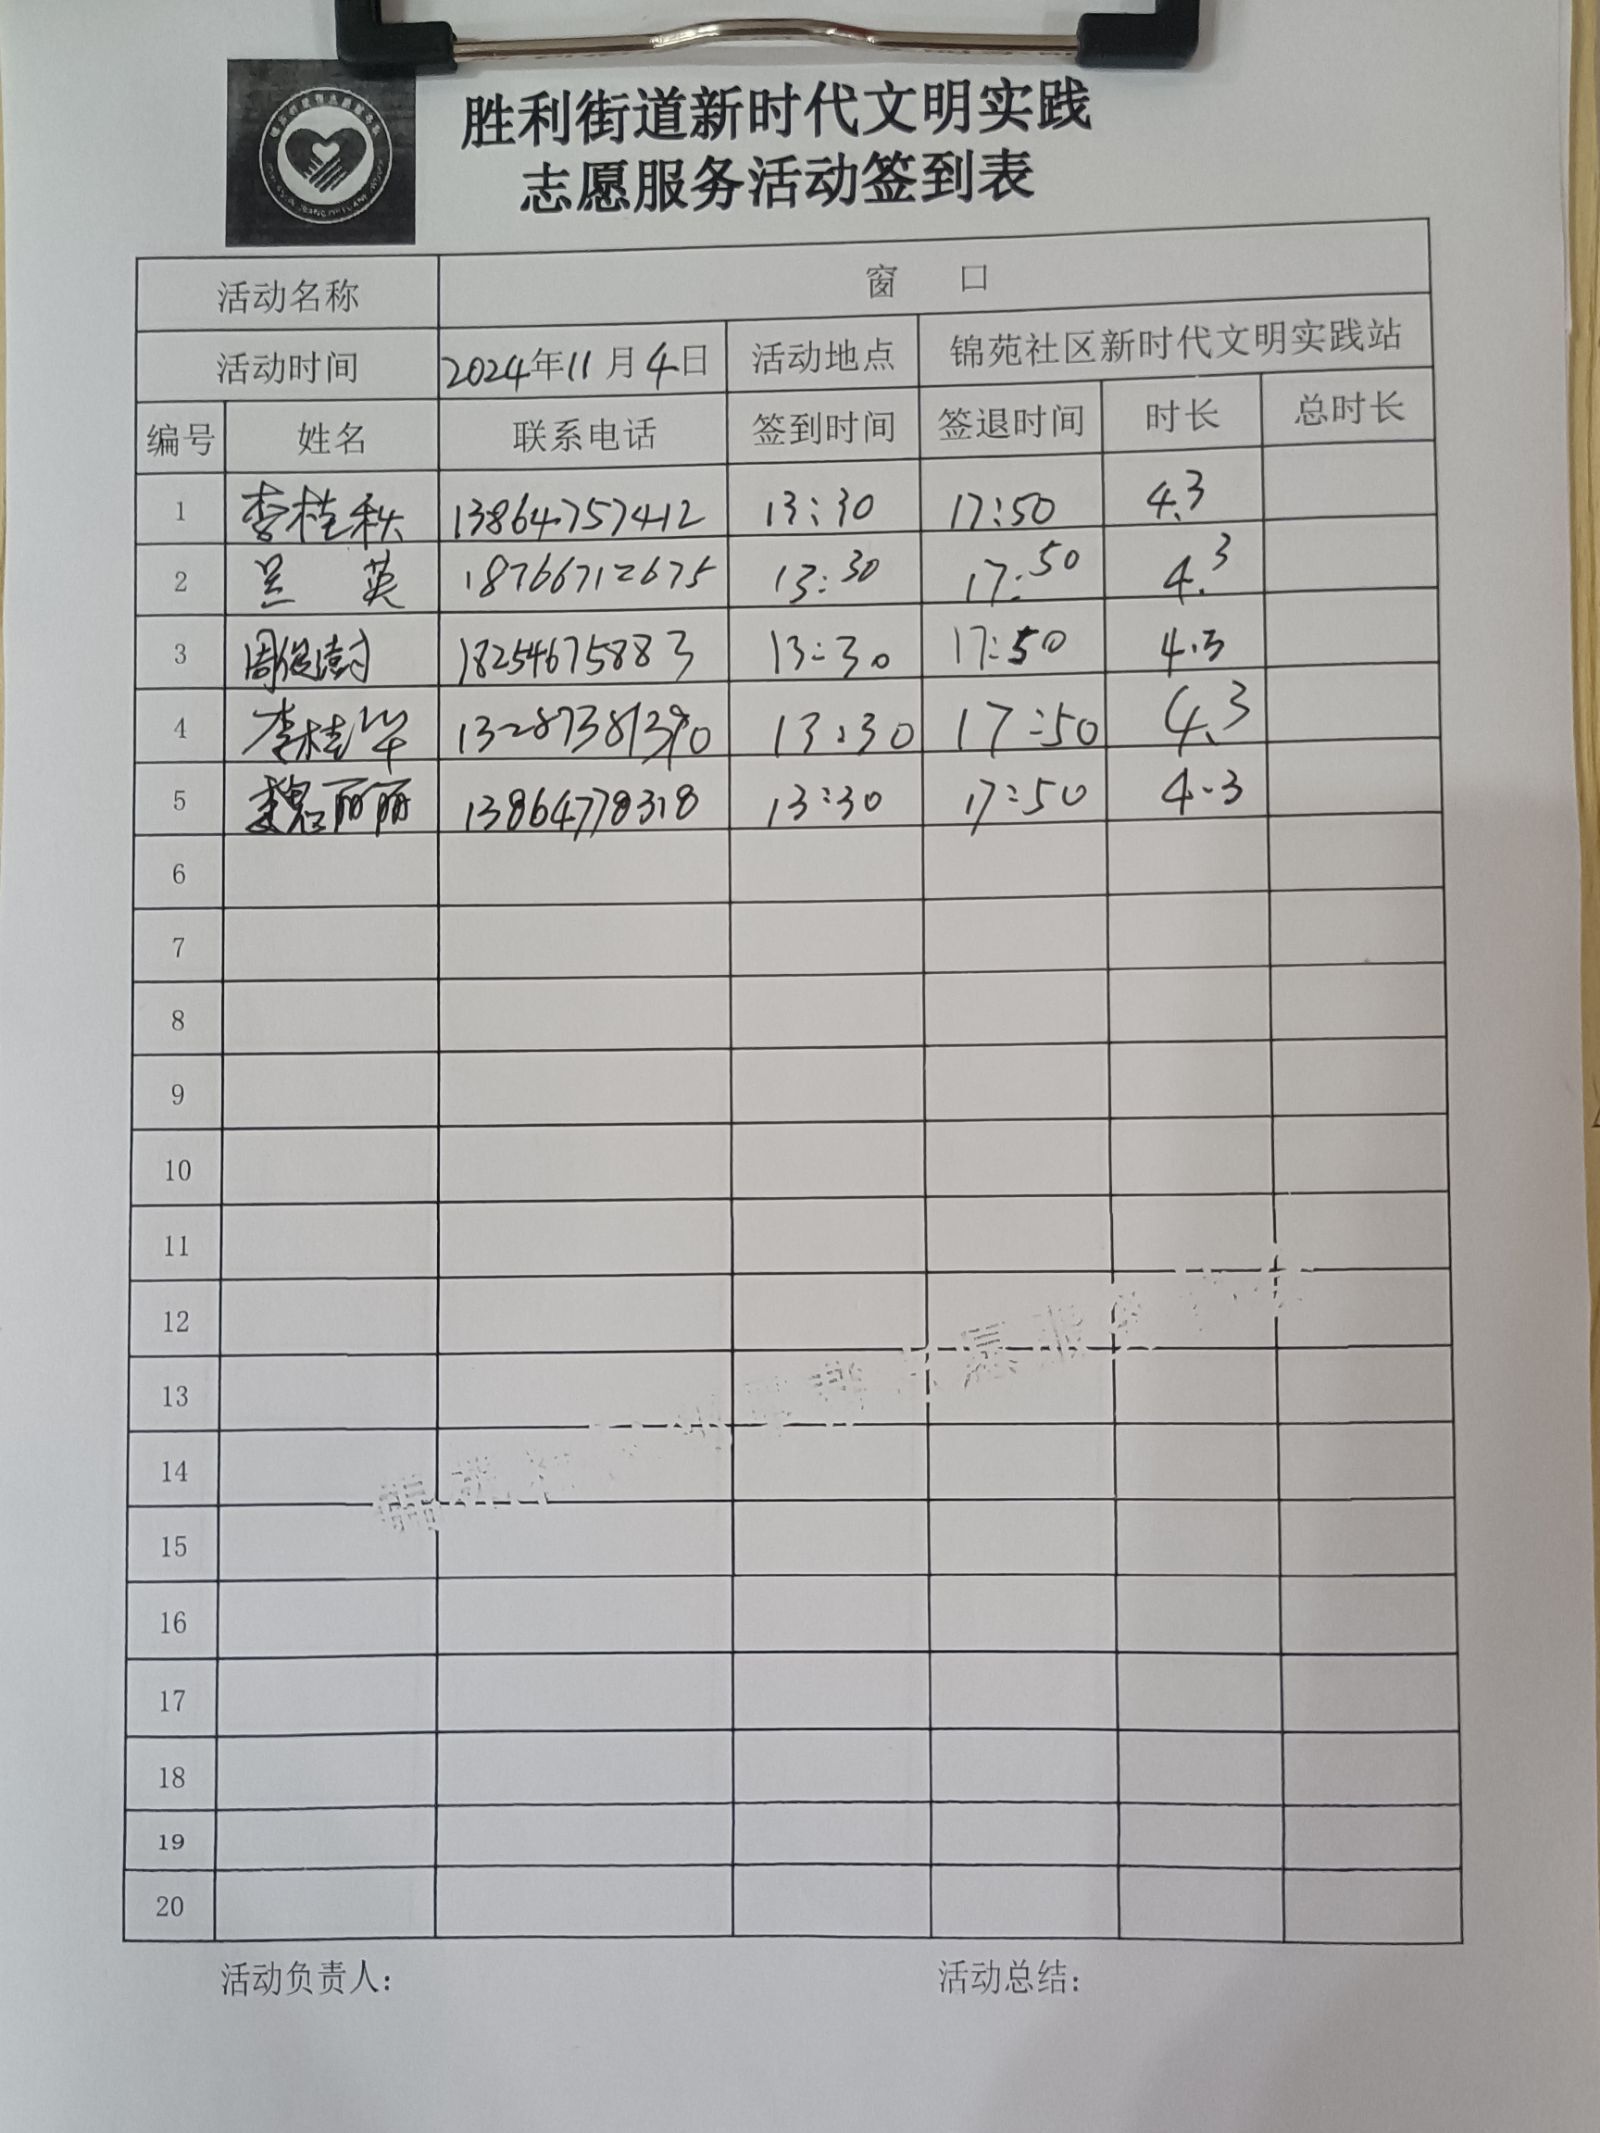 胜利街道新时代文明实践
志愿服务活动签到表
活动名称 窗 口
活动时间 2024年11月4日 活动地点 锦苑社区新时代文明实践站
编号 姓名 联系电话 签到时间 签退时间 时长 总时长
1 李桂秋 13864757412 13:30 17:50 4.3
2 兰 英 18766712675 13:30 17:50 4.3
3 周 18254675883 13:30 17:50 4.3
4 李桂华 13:30 17:50 4.3
5 魏丽丽 13864778318 13:30 17:50 4.3
6
7
8
9
10
11
12
13
14
15
16
17
18
19
20
活动负责人: 活动总结: